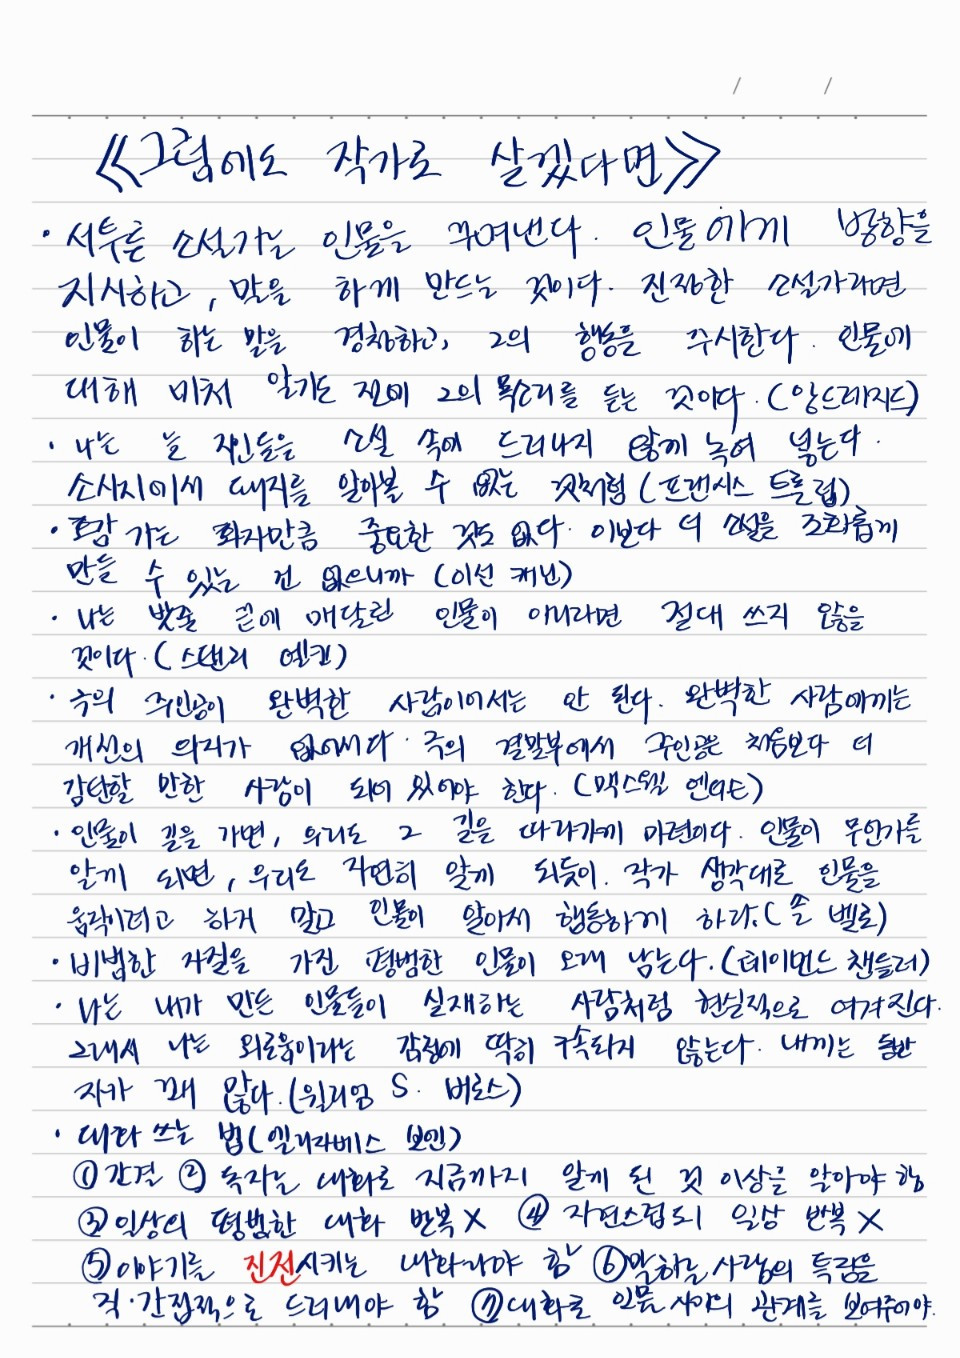 / /
《그럼에도 작가로 살겠다면》
· 서투른 소설가는 인물을 꾸며낸다. 인물에게 방향을
지시하고, 말을 하게 만드는 것이다. 진정한 소설가라면
인물이 하는 말을 경청하고, 그의 행동을 주시한다. 인물에
대해 미처 알기도 전에 그의 목소리를 듣는 것이다. (앙드레지드)
· 나는 늘 지인들을 소설 속에 드러나지 않게 녹여 넣는다.
소시지에서 돼지를 알아볼 수 없는 것처럼 (프랜시스 트롤럽)
· 호감 가는 화자만큼 중요한 것도 없다. 이보다 더 소설을 조화롭게
만들 수 있는 건 없으니까 (이선 캐닌)
· 나는 밧줄 끝에 매달린 인물이 아니라면 절대 쓰지 않을
것이다. (스탠리 엘킨)
· 극의 주인공이 완벽한 사람이어서는 안 된다. 완벽한 사람에게는
개선의 의지가 없어서다. 극의 결말부에서 주인공은 처음보다 더
감탄할 만한 사람이 되어 있어야 한다. (맥스웰 앤더슨)
· 인물이 길을 가면, 우리도 그 길을 따라가게 마련이다. 인물이 무언가를
알게 되면, 우리도 자연히 알게 되듯이. 작가 생각대로 인물을
움직이려고 하지 말고 인물이 알아서 행동하게 하라. (솔 벨로)
· 비범한 자질을 가진 평범한 인물이 오래 남는다. (레이먼드 챈들러)
· 나는 내가 만든 인물들이 실재하는 사람처럼 현실적으로 여겨진다.
그래서 나는 외로움이라는 감정에 딱히 구속되지 않는다. 내게는 동반
자가 꽤 많다. (윌리엄 S. 버로스)
· 대화 쓰는 법 (엘리자베스 보엔)
① 간결 ② 독자는 대화로 지금까지 알게 된 것 이상을 알아야 함
③ 일상의 평범한 대화 반복 X ④ 자연스럽되 일상 반복 X
⑤ 이야기를 진전시키는 대화라야 함 ⑥ 말하는 사람의 특징을
직·간접적으로 드러내야 함 ⑦ 대화로 인물 사이의 관계를 보여주어야.